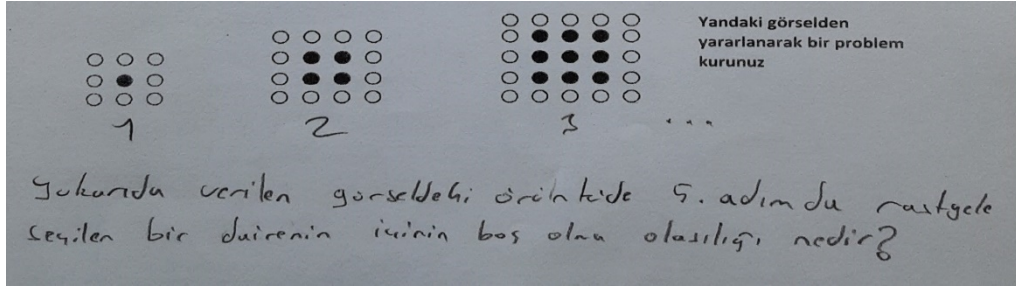 Yandaki görselden
yararlanarak bir problem
kurunuz
1 2 3 ...
Yukarıda verilen görseldeki örüntüde 5. adımda rastgele
seçilen bir dairenin içinin boş olma olasılığı nedir?